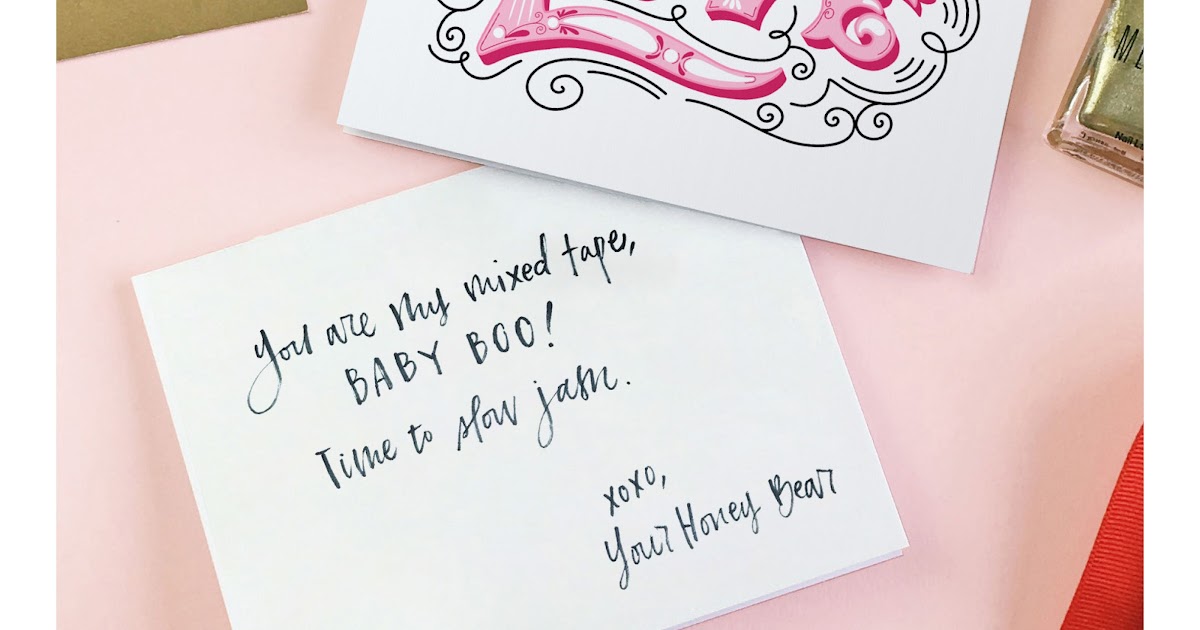 You are my mixed tape,
BABY BOO!
Time to slow jam.
xoxo,
Your Honey Bear